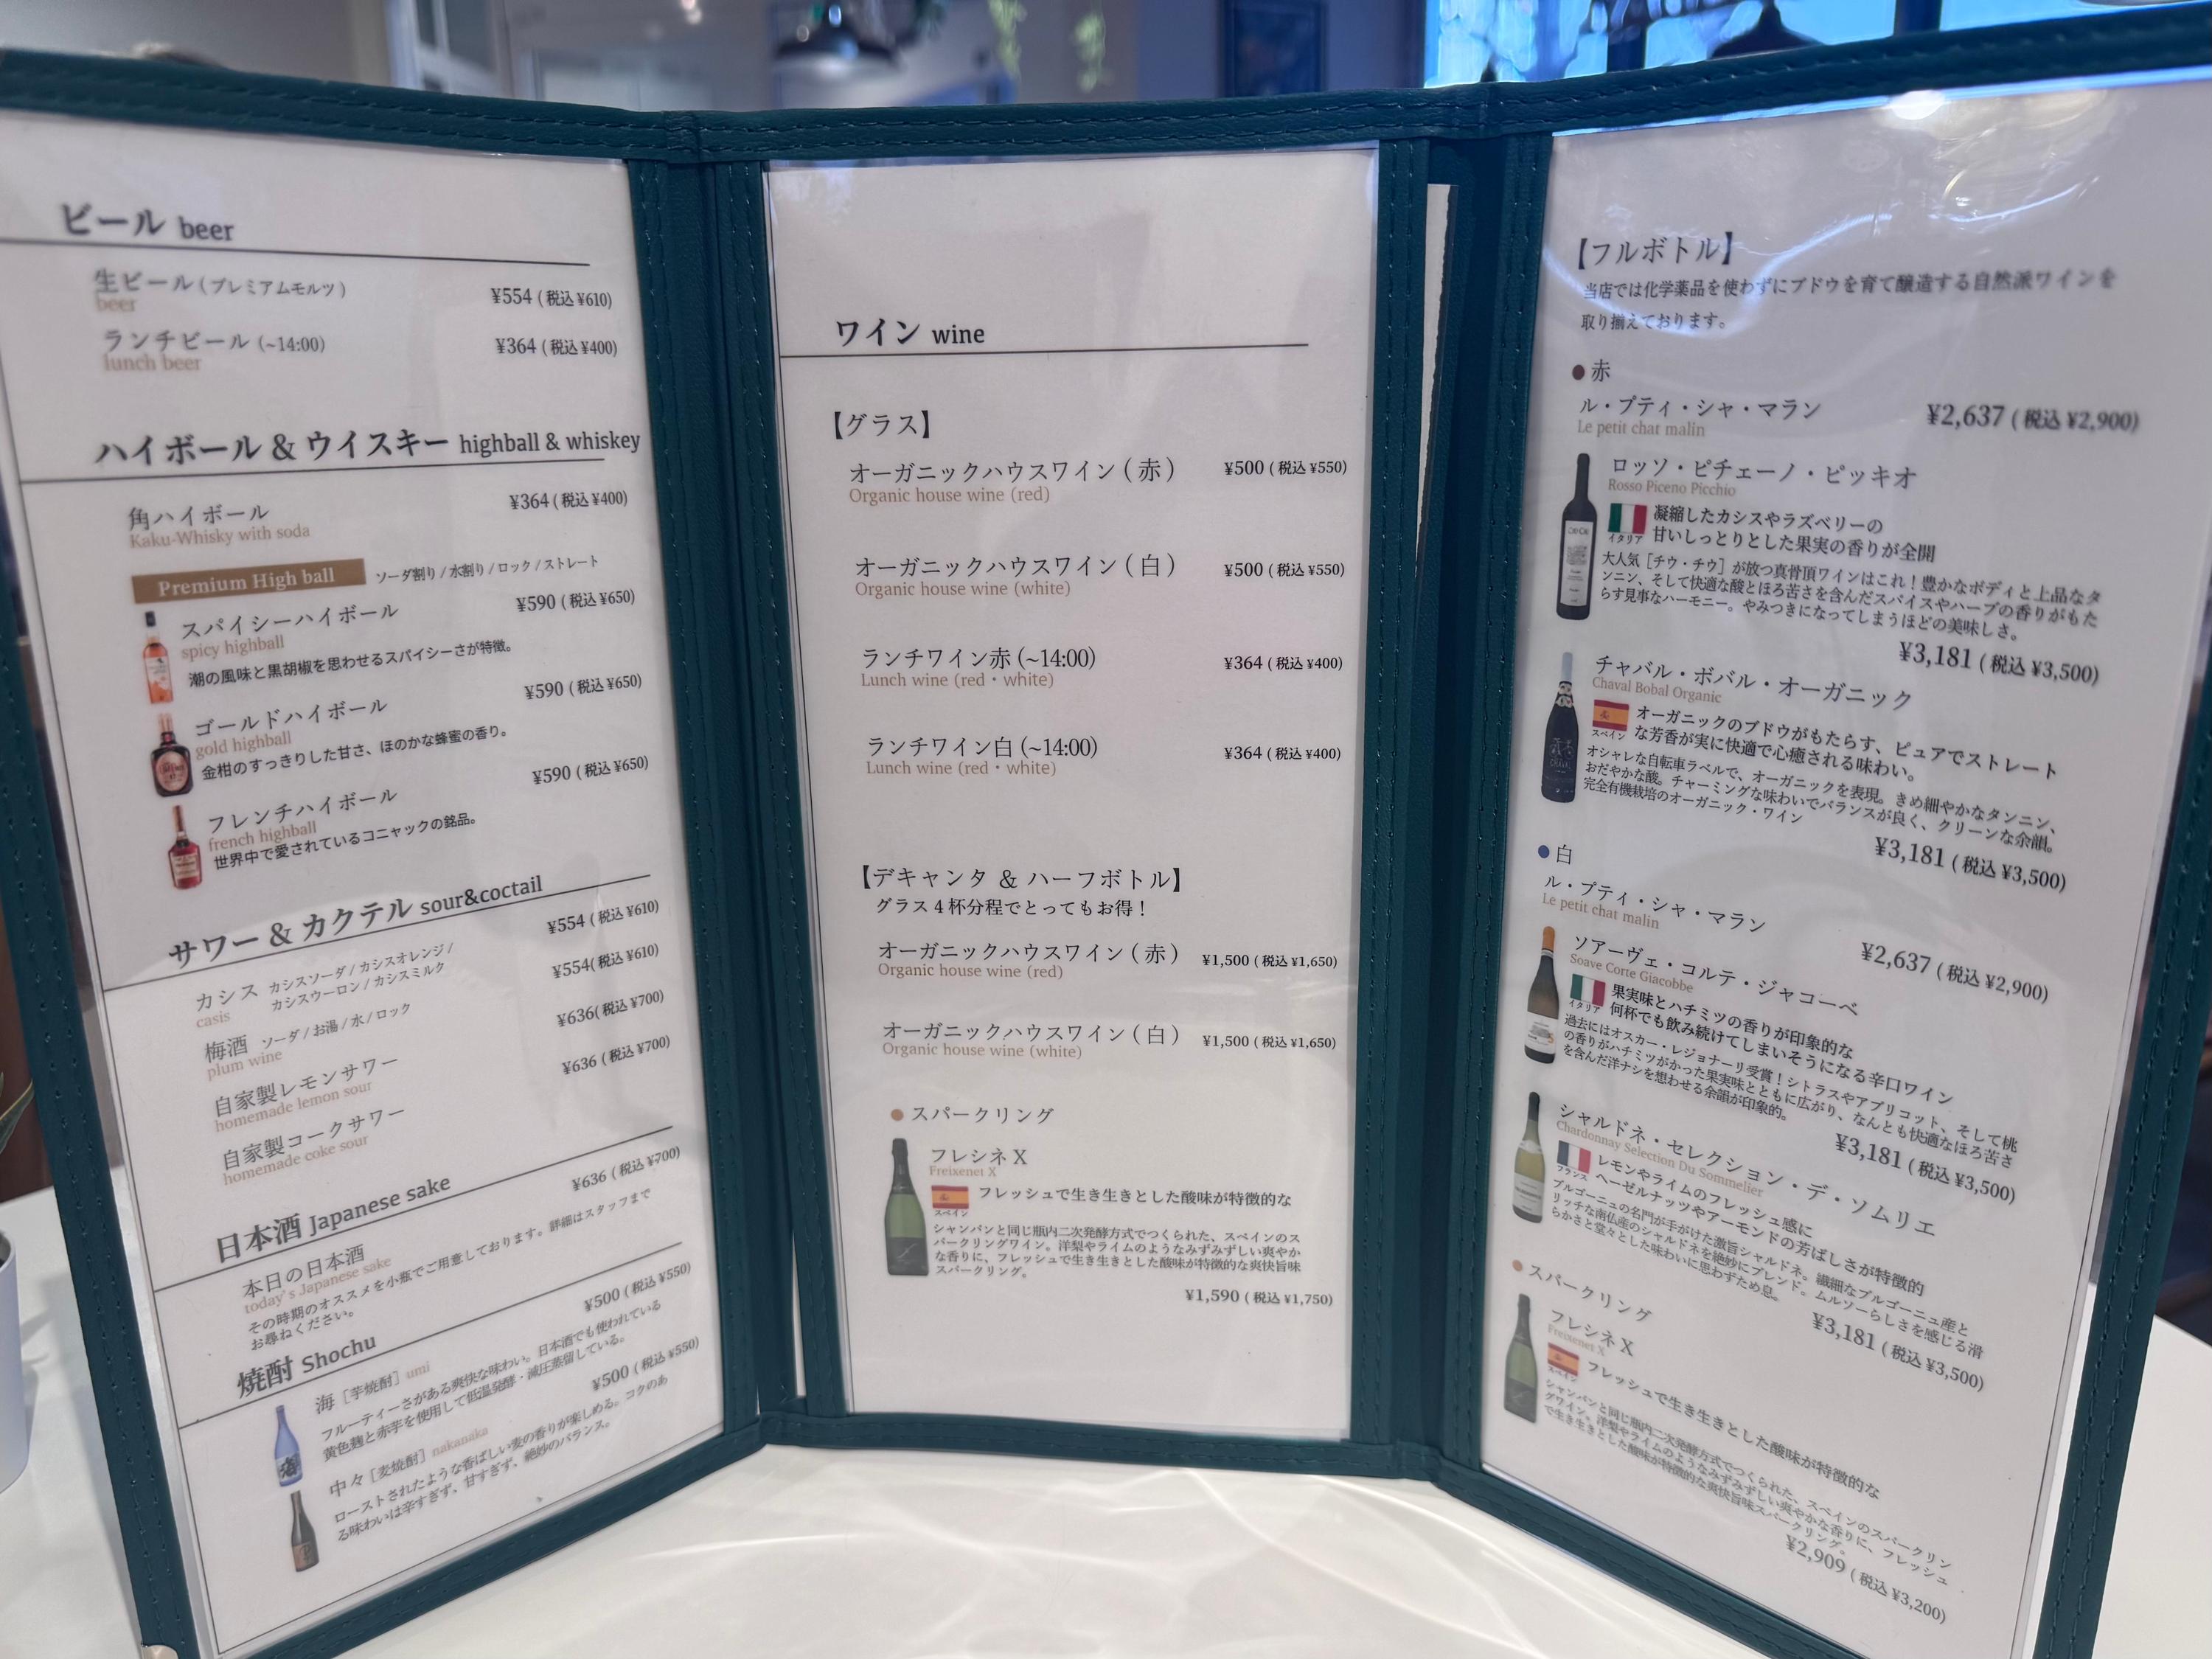 ビール beer
生ビール(プレミアムモルツ) ¥554 (税込 ¥610)
beer
ランチビール (~14:00) ¥364 (税込 ¥400)
lunch beer
ハイボール & ウイスキー highball & whiskey
角ハイボール ¥364 (税込 ¥400)
Kaku-Whisky with soda
Premium High ball ソーダ割り / 水割り / ロック / ストレート
スパイシーハイボール ¥590 (税込 ¥650)
spicy highball
潮の風味と黒胡椒を思わせるスパイシーさが特徴。
ゴールドハイボール ¥590 (税込 ¥650)
gold highball
金柑のすっきりした甘さ、ほのかな蜂蜜の香り。
フレンチハイボール ¥590 (税込 ¥650)
french highball
世界中で愛されているコニャックの銘品。
サワー & カクテル sour&coctail
カシス カシスソーダ / カシスオレンジ / ¥554 (税込 ¥610)
カシスウーロン / カシスミルク
casis
梅酒 ソーダ / お湯 / 水 / ロック ¥554(税込 ¥610)
plum wine
自家製レモンサワー ¥636(税込 ¥700)
homemade lemon sour
自家製コークサワー ¥636 (税込 ¥700)
homemade coke sour
日本酒 Japanese sake
本日の日本酒 ¥636 (税込 ¥700)
today's Japanese sake
その時期のオススメを小瓶でご用意しております。詳細はスタッフまで
お尋ねください。
焼酎 Shochu
海 [芋焼酎] umi ¥500 (税込 ¥550)
フルーティーさがある爽快な味わい。日本酒でも使われている
黄色麹と赤芋を使用して低温発酵・減圧蒸留している。
中々 [麦焼酎] nakanaka ¥500 (税込 ¥550)
ローストされたような香ばしい麦の香りが楽しめる。コクのあ
る味わいは辛すぎず、甘すぎず、絶妙のバランス。
ワイン wine
【グラス】
オーガニックハウスワイン ( 赤 ) ¥500 (税込 ¥550)
Organic house wine (red)
オーガニックハウスワイン ( 白 ) ¥500 (税込 ¥550)
Organic house wine (white)
ランチワイン赤 (~14:00) ¥364 (税込 ¥400)
Lunch wine (red・white)
ランチワイン白 (~14:00) ¥364 (税込 ¥400)
Lunch wine (red・white)
【デキャンタ & ハーフボトル】
グラス4杯分程でとってもお得！
オーガニックハウスワイン ( 赤 ) ¥1,500 (税込 ¥1,650)
Organic house wine (red)
オーガニックハウスワイン ( 白 ) ¥1,500 (税込 ¥1,650)
Organic house wine (white)
● スパークリング
フレシネ X
Freixenet X
スペイン フレッシュで生き生きとした酸味が特徴的な
シャンパンと同じ瓶内二次発酵方式でつくられた、スペインのス
パークリングワイン。洋梨やライムのようなみずみずしい爽やか
な香りに、フレッシュで生き生きとした酸味が特徴的な爽快旨味
スパークリング。
¥1,590 (税込 ¥1,750)
【フルボトル】
当店では化学薬品を使わずにブドウを育て醸造する自然派ワインを
取り揃えております。
● 赤
ル・プティ・シャ・マラン ¥2,637 (税込 ¥2,900)
Le petit chat malin
ロッソ・ピチェーノ・ピッキオ
Rosso Piceno Picchio
イタリア 凝縮したカシスやラズベリーの
甘いしっとりとした果実の香りが全開
大人気［チウ・チウ］が放つ真骨頂ワインはこれ！豊かなボディと上品なタ
ンニン、そして快適な酸とほろ苦さを含んだスパイスやハーブの香りがもた
らす見事なハーモニー。やみつきになってしまうほどの美味しさ。
¥3,181 (税込 ¥3,500)
チャバル・ボバル・オーガニック
Chaval Bobal Organic
スペイン オーガニックのブドウがもたらす、ピュアでストレート
な芳香が実に快適で心癒される味わい。
オシャレな自転車ラベルで、オーガニックを表現。きめ細やかなタンニン、
おだやかな酸。チャーミングな味わいでバランスが良く、クリーンな余韻。
完全有機栽培のオーガニック・ワイン
¥3,181 (税込 ¥3,500)
● 白
ル・プティ・シャ・マラン ¥2,637 (税込 ¥2,900)
Le petit chat malin
ソアーヴェ・コルテ・ジャコーベ
Soave Corte Giacobbe
イタリア 果実味とハチミツの香りが印象的な
何杯でも飲み続けてしまいそうになる辛口ワイン
過去にはオスカー・レジョナーリ受賞！シトラスやアプリコット、そして桃
の香りがハチミツがかった果実味とともに広がり、なんとも快適なほろ苦さ
を含んだ洋ナシを想わせる余韻が印象的。
¥3,181 (税込 ¥3,500)
シャルドネ・セレクション・デ・ソムリエ
Chardonnay Selection Du Sommelier
フランス レモンやライムのフレッシュ感に
ヘーゼルナッツやアーモンドの芳ばしさが特徴的
ブルゴーニュの名門が手がけた激旨シャルドネ。繊細なブルゴーニュ産と
リッチな南仏産のシャルドネを絶妙にブレンド。ムルソーらしさを感じる滑
らかさと堂々とした味わいに思わずため息。
¥3,181 (税込 ¥3,500)
● スパークリング
フレシネ X
Freixenet X
スペイン フレッシュで生き生きとした酸味が特徴的な
シャンパンと同じ瓶内二次発酵方式でつくられた、スペインのスパークリン
グワイン。洋梨やライムのようなみずみずしい爽やかな香りに、フレッシュ
で生き生きとした酸味が特徴的な爽快旨味スパークリング。
¥2,909 (税込 ¥3,200)